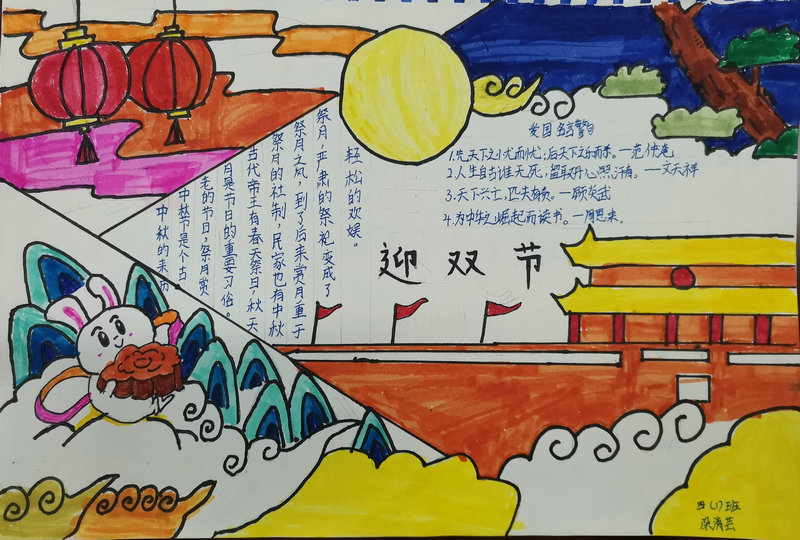 中秋的来历
中秋节是个古
老的节日，祭月赏
月是节日的重要习俗。
古代帝王有春天祭日，秋天
祭月的社制，民家也有中秋
祭月之风，到了后来赏月重于
祭月，严肃的祭祀变成了
轻松的欢娱。
爱国名言警句
1.先天下之忧而忧；后天下之乐而乐。—范仲淹
2.人生自古谁无死，留取丹心照汗青。—文天祥
3.天下兴亡，匹夫有责。—顾炎武
4.为中华之崛起而读书。—周恩来。
迎双节
四（1）班